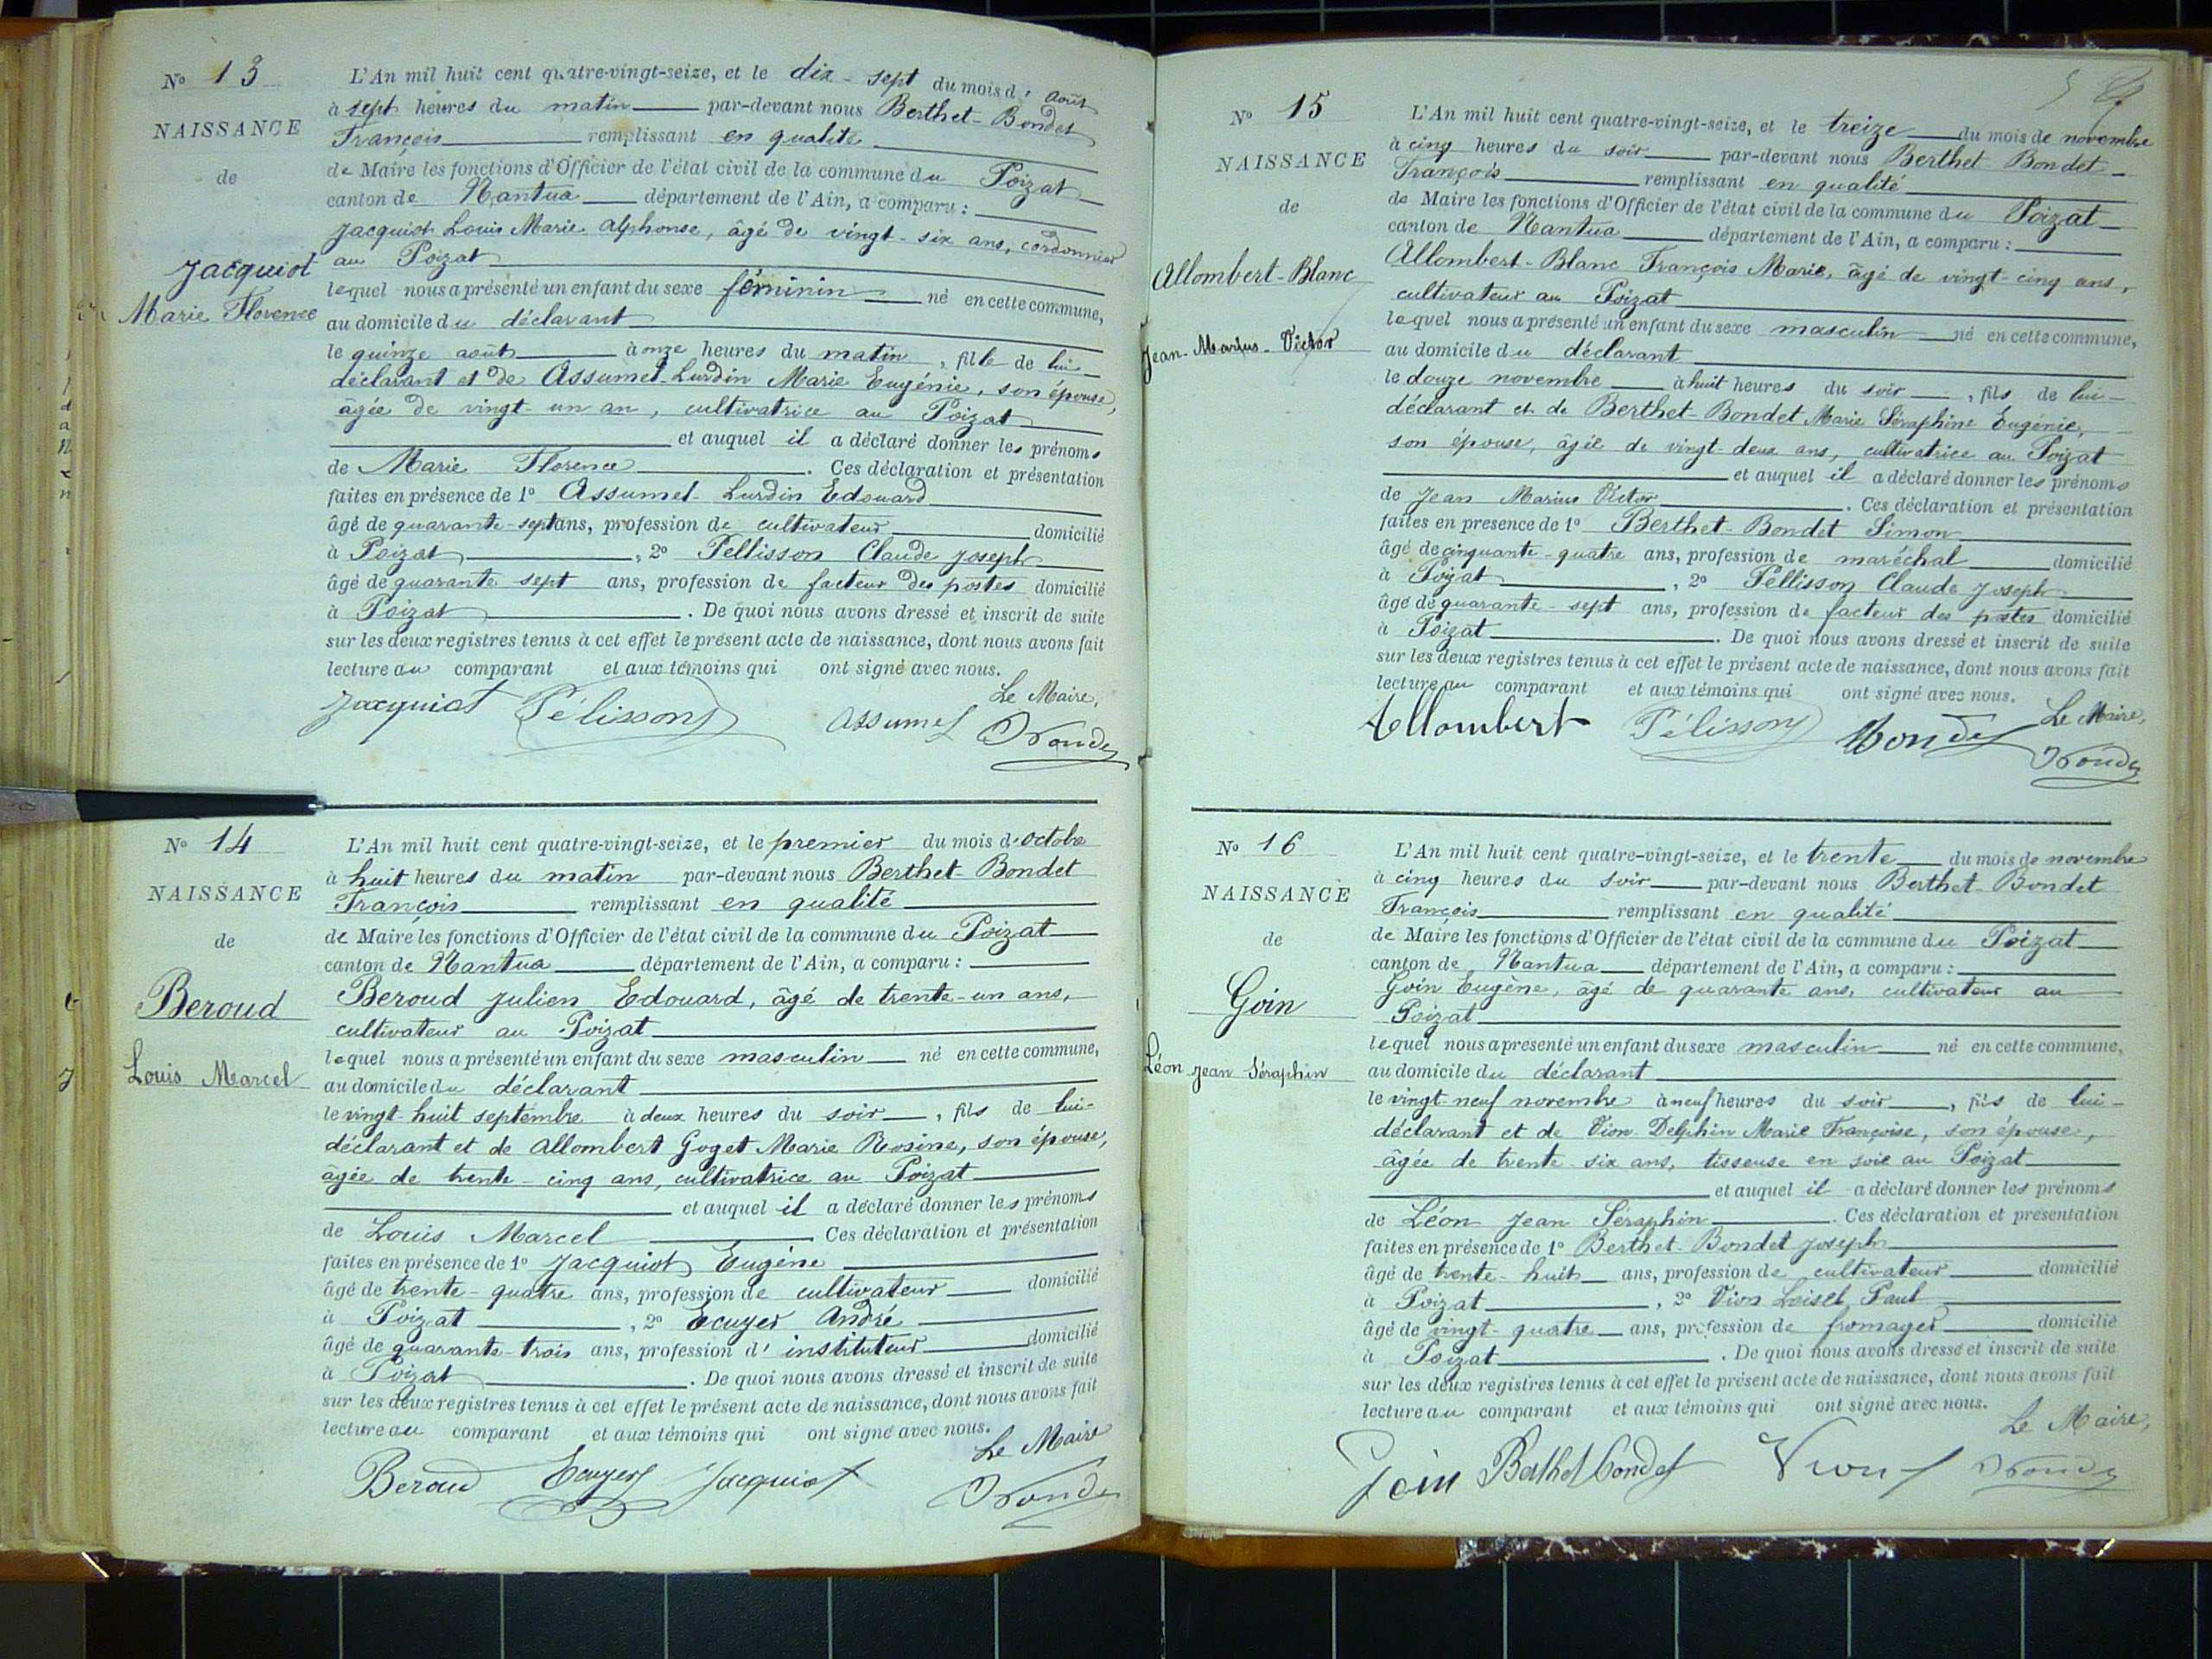 N° 13
NAISSANCE
de
Jacquiot
Marie Florence
L'An mil huit cent quatre-vingt-seize, et le dix-sept du mois d'août
à sept heures du matin par-devant nous Berthet-Bondet
François remplissant en qualité
de Maire les fonctions d'Officier de l'état civil de la commune du Poizat
canton de Nantua département de l'Ain, a comparu :
Jacquiot Louis Marie Alphonse, âgé de vingt-six ans, cordonnier
au Poizat
lequel nous a présenté un enfant du sexe féminin né en cette commune,
au domicile du déclarant
le quinze août à onze heures du matin, fille de lui-
déclarant et de Assumel-Lurdin Marie Eugénie, son épouse,
âgée de vingt-un an, cultivatrice au Poizat
et auquel il a déclaré donner les prénoms
de Marie Florence. Ces déclaration et présentation
faites en présence de 1° Assumel-Lurdin Edouard
âgé de quarante-sept ans, profession de cultivateur domicilié
à Poizat, 2° Pellisson Claude Joseph
âgé de quarante sept ans, profession de facteur des postes domicilié
à Poizat. De quoi nous avons dressé et inscrit de suite
sur les deux registres tenus à cet effet le présent acte de naissance, dont nous avons fait
lecture au comparant et aux témoins qui ont signé avec nous.
Le Maire,
Jacquiot Pélisson Assumel Bondet
N° 14
NAISSANCE
de
Beroud
Louis Marcel
L'An mil huit cent quatre-vingt-seize, et le premier du mois d'octobre
à huit heures du matin par-devant nous Berthet-Bondet
François remplissant en qualité
de Maire les fonctions d'Officier de l'état civil de la commune du Poizat
canton de Nantua département de l'Ain, a comparu :
Beroud Julien Edouard, âgé de trente-un ans,
cultivateur au Poizat
lequel nous a présenté un enfant du sexe masculin né en cette commune,
au domicile du déclarant
le vingt-huit septembre à deux heures du soir, fils de lui-
déclarant et de Allombert Goget Marie Rosine, son épouse,
âgée de trente-cinq ans, cultivatrice au Poizat
et auquel il a déclaré donner les prénoms
de Louis Marcel Ces déclaration et présentation
faites en présence de 1° Jacquiot Eugène
âgé de trente-quatre ans, profession de cultivateur domicilié
à Poizat, 2° Ecuyer André
âgé de quarante-trois ans, profession d'instituteur domicilié
à Poizat. De quoi nous avons dressé et inscrit de suite
sur les deux registres tenus à cet effet le présent acte de naissance, dont nous avons fait
lecture au comparant et aux témoins qui ont signé avec nous.
Le Maire
Beroud Ecuyer Jacquiot Bondet
N° 15
NAISSANCE
de
Allombert-Blanc
Jean-Marius-Victor
L'An mil huit cent quatre-vingt-seize, et le treize du mois de novembre
à cinq heures du soir par-devant nous Berthet-Bondet
François remplissant en qualité
de Maire les fonctions d'Officier de l'état civil de la commune du Poizat
canton de Nantua département de l'Ain, a comparu :
Allombert-Blanc François Marie, âgé de vingt-cinq ans,
cultivateur au Poizat
lequel nous a présenté un enfant du sexe masculin né en cette commune,
au domicile du déclarant
le douze novembre à huit heures du soir, fils de lui-
déclarant et de Berthet-Bondet Marie Séraphine Eugénie,
son épouse, âgée de vingt-deux ans, cultivatrice au Poizat
et auquel il a déclaré donner les prénoms
de Jean Marius Victor. Ces déclaration et présentation
faites en présence de 1° Berthet-Bondet Simon
âgé de cinquante-quatre ans, profession de maréchal domicilié
à Poizat, 2° Pellisson Claude Joseph
âgé de quarante-sept ans, profession de facteur des postes domicilié
à Poizat. De quoi nous avons dressé et inscrit de suite
sur les deux registres tenus à cet effet le présent acte de naissance, dont nous avons fait
lecture au comparant et aux témoins qui ont signé avec nous.
Le Maire,
Allombert Pélisson Bondet Bondet
N° 16
NAISSANCE
de
Goin
Léon Jean Séraphin
L'An mil huit cent quatre-vingt-seize, et le trente du mois de novembre
à cinq heures du soir par-devant nous Berthet-Bondet
François remplissant en qualité
de Maire les fonctions d'Officier de l'état civil de la commune du Poizat
canton de Nantua département de l'Ain, a comparu :
Goin Eugène, âgé de quarante ans, cultivateur au
Poizat
lequel nous a présenté un enfant du sexe masculin né en cette commune,
au domicile du déclarant
le vingt-neuf novembre à neuf heures du soir, fils de lui-
déclarant et de Vion-Delphin Marie Françoise, son épouse,
âgée de trente-six ans, tisseuse en soie au Poizat
et auquel il a déclaré donner les prénoms
de Léon Jean Séraphin. Ces déclaration et présentation
faites en présence de 1° Berthet-Bondet Joseph
âgé de trente-huit ans, profession de cultivateur domicilié
à Poizat, 2° Vion Loisel Paul
âgé de vingt-quatre ans, profession de fromager domicilié
à Poizat. De quoi nous avons dressé et inscrit de suite
sur les deux registres tenus à cet effet le présent acte de naissance, dont nous avons fait
lecture au comparant et aux témoins qui ont signé avec nous.
Le Maire,
Goin Berthet Bondet Vion Bondet